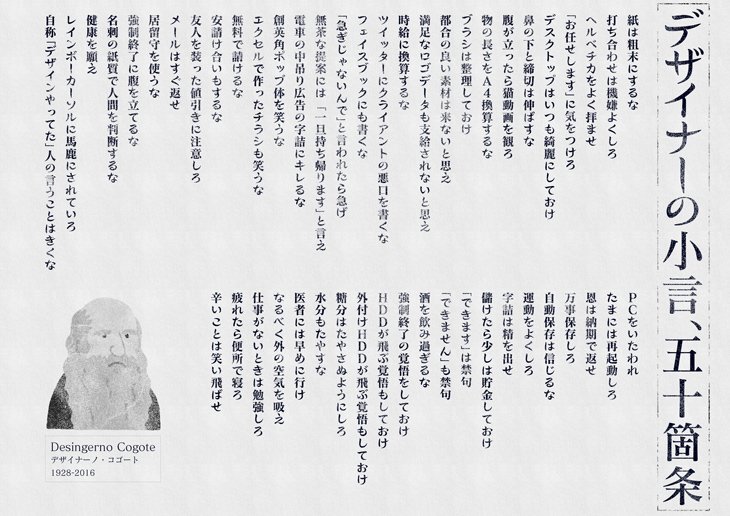 デザイナーの小言、五十箇条
紙は粗末にするな
打ち合わせは機嫌よくしろ
ヘルベチカをよく拝ませ
「お任せします」に気をつけろ
デスクトップはいつも綺麗にしておけ
鼻の下と締切は伸ばすな
腹が立ったら猫動画を観ろ
物の長さをA4換算するな
ブラシは整理しておけ
都合の良い素材は来ないと思え
満足なロゴデータも支給されないと思え
時給に換算するな
ツイッターにクライアントの悪口を書くな
フェイスブックにも書くな
「急ぎじゃないんで」と言われたら急げ
無茶な提案には「一旦持ち帰ります」と言え
電車の中吊り広告の字詰にキレるな
創英角ポップ体を笑うな
エクセルで作ったチラシも笑うな
無料で請けるな
安請け合いもするな
友人を装った値引きに注意しろ
メールはすぐ返せ
居留守を使うな
強制終了に腹を立てるな
名刺の紙質で人間を判断するな
健康を願え
レインボーカーソルに馬鹿にされていろ
自称「デザインやってた」人の言うことはきくな
PCをいたわれ
たまには再起動しろ
恩は納期で返せ
万事保存しろ
自動保存は信じるな
運動をよくしろ
字詰は精を出せ
儲けたら少しは貯金しておけ
「できます」は禁句
「できません」も禁句
酒を飲み過ぎるな
強制終了の覚悟をしておけ
HDDが飛ぶ覚悟もしておけ
外付けHDDが飛ぶ覚悟もしておけ
糖分はたやさぬようにしろ
水分もたやすな
医者には早めに行け
なるべく外の空気を吸え
仕事がないときは勉強しろ
疲れたら便所で寝ろ
辛いことは笑い飛ばせ
Desingerno Cogote
デザイナーノ・コゴート
1928-2016